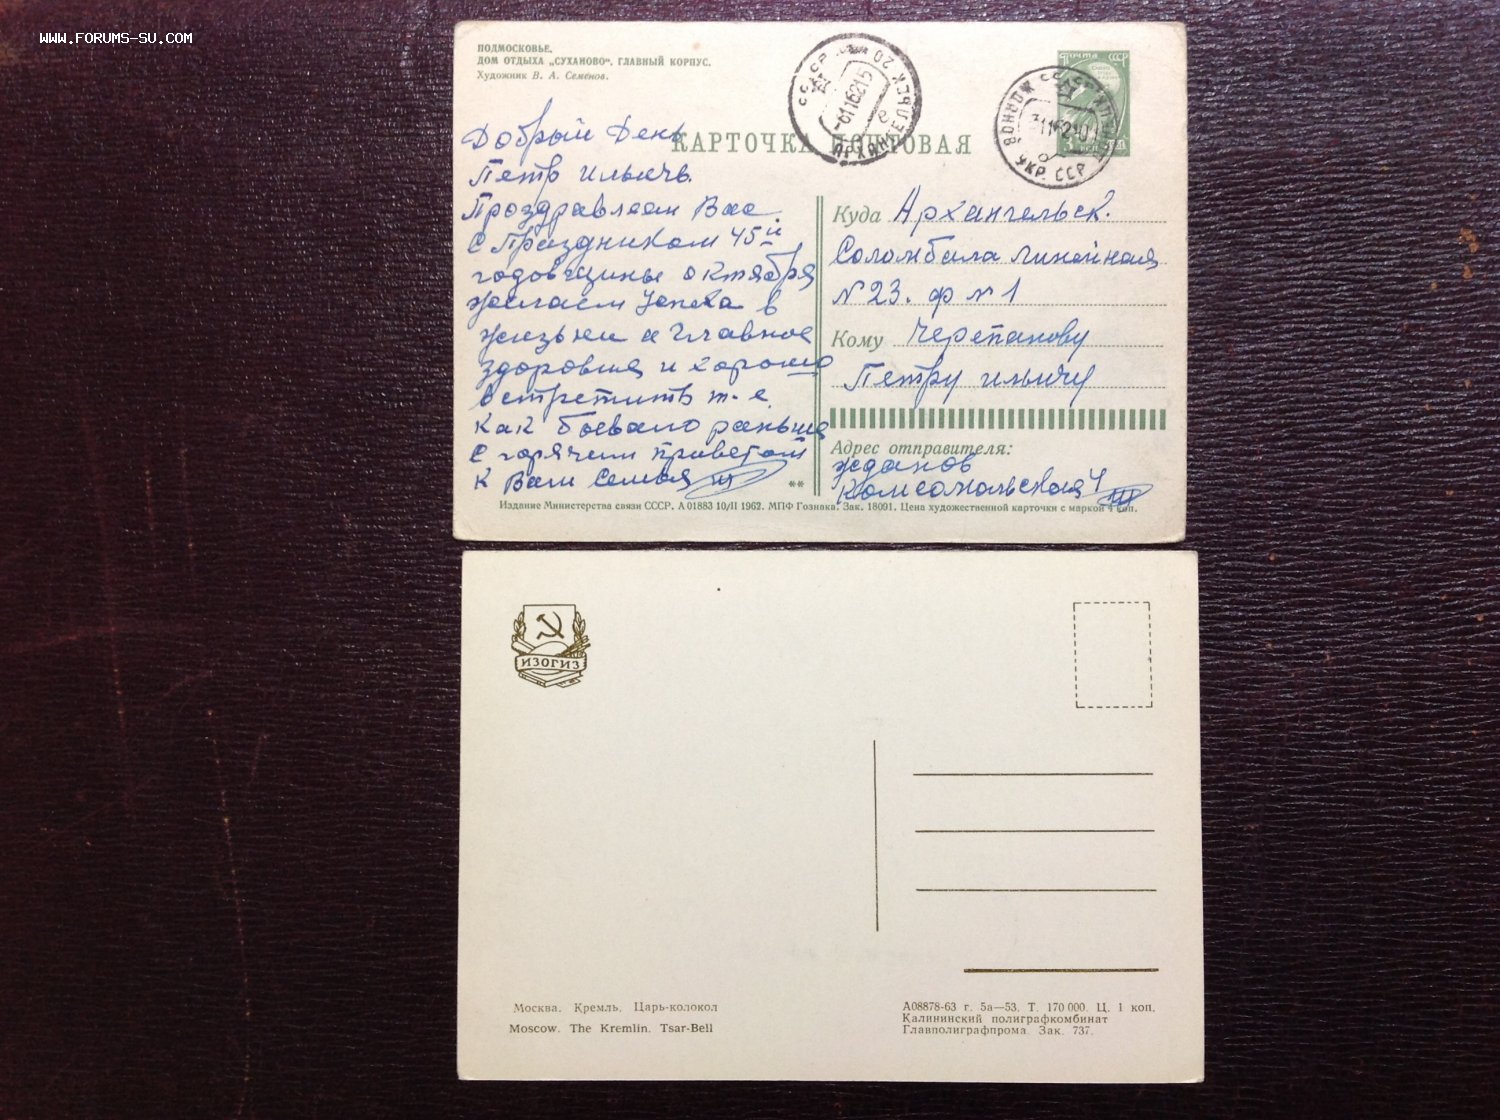 WWW.FORUMS-SU.COM
ПОДМОСКОВЬЕ.
ДОМ ОТДЫХА „СУХАНОВО“. ГЛАВНЫЙ КОРПУС.
Художник В. А. Семенов.
ПОЧТА СССР
КАРТОЧКА ПОЧТОВАЯ
СССР АРХАНГЕЛЬСК 20
УКР. ССР
Добрый День
Петр Ильичь.
Проздравлеам Вас
с Праздником 45й
годовщины октября
желаем Успеха в
жизьни и главное
здоровия и хорошо
встретить т-е
как боевало раньше
с горячим приветом
к Ваш семья
Куда Архангельск.
Соломбала Линейная
№ 23. ф № 1
Кому Черепанову
Петру ильичу
Адрес отправителя:
Жданов
Комсомольская 4
**
Издание Министерства связи СССР. А 01883 10/II 1962. МПФ Гознака. Зак. 18091. Цена художественной карточки с маркой 4 коп.
ИЗОГИЗ
Москва. Кремль. Царь-колокол
Moscow. The Kremlin. Tsar-Bell
А08878-63 г. 5а—53. Т. 170 000. Ц. 1 коп.
Калининский полиграфкомбинат
Главполиграфпрома. Зак. 737.